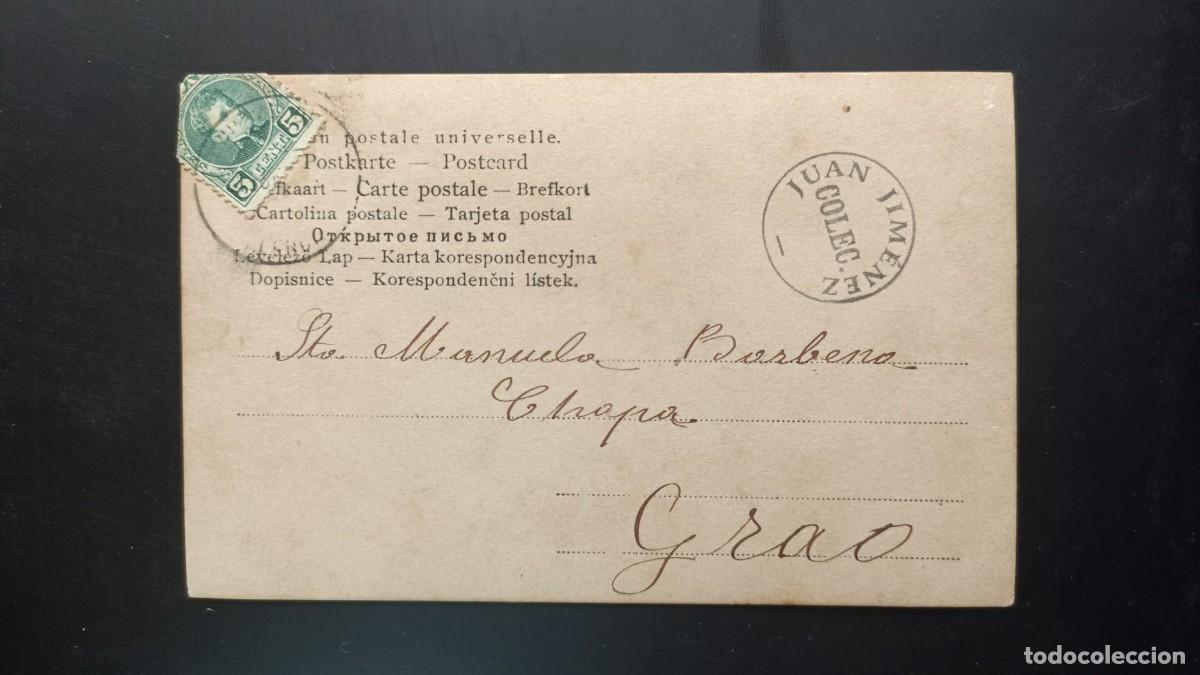 5 CENT.s 5
postale universelle.
Postkarte — Postcard
Carte postale — Brefkort
Cartolina postale — Tarjeta postal
Открытое письмо
Levelező Lap — Karta korespondencyjna
Dopisnice — Korespondenční lístek.
JUAN JIMÉNEZ
COLEC.
Sta Manuela Borbena
Chapa
Grao
todocoleccion